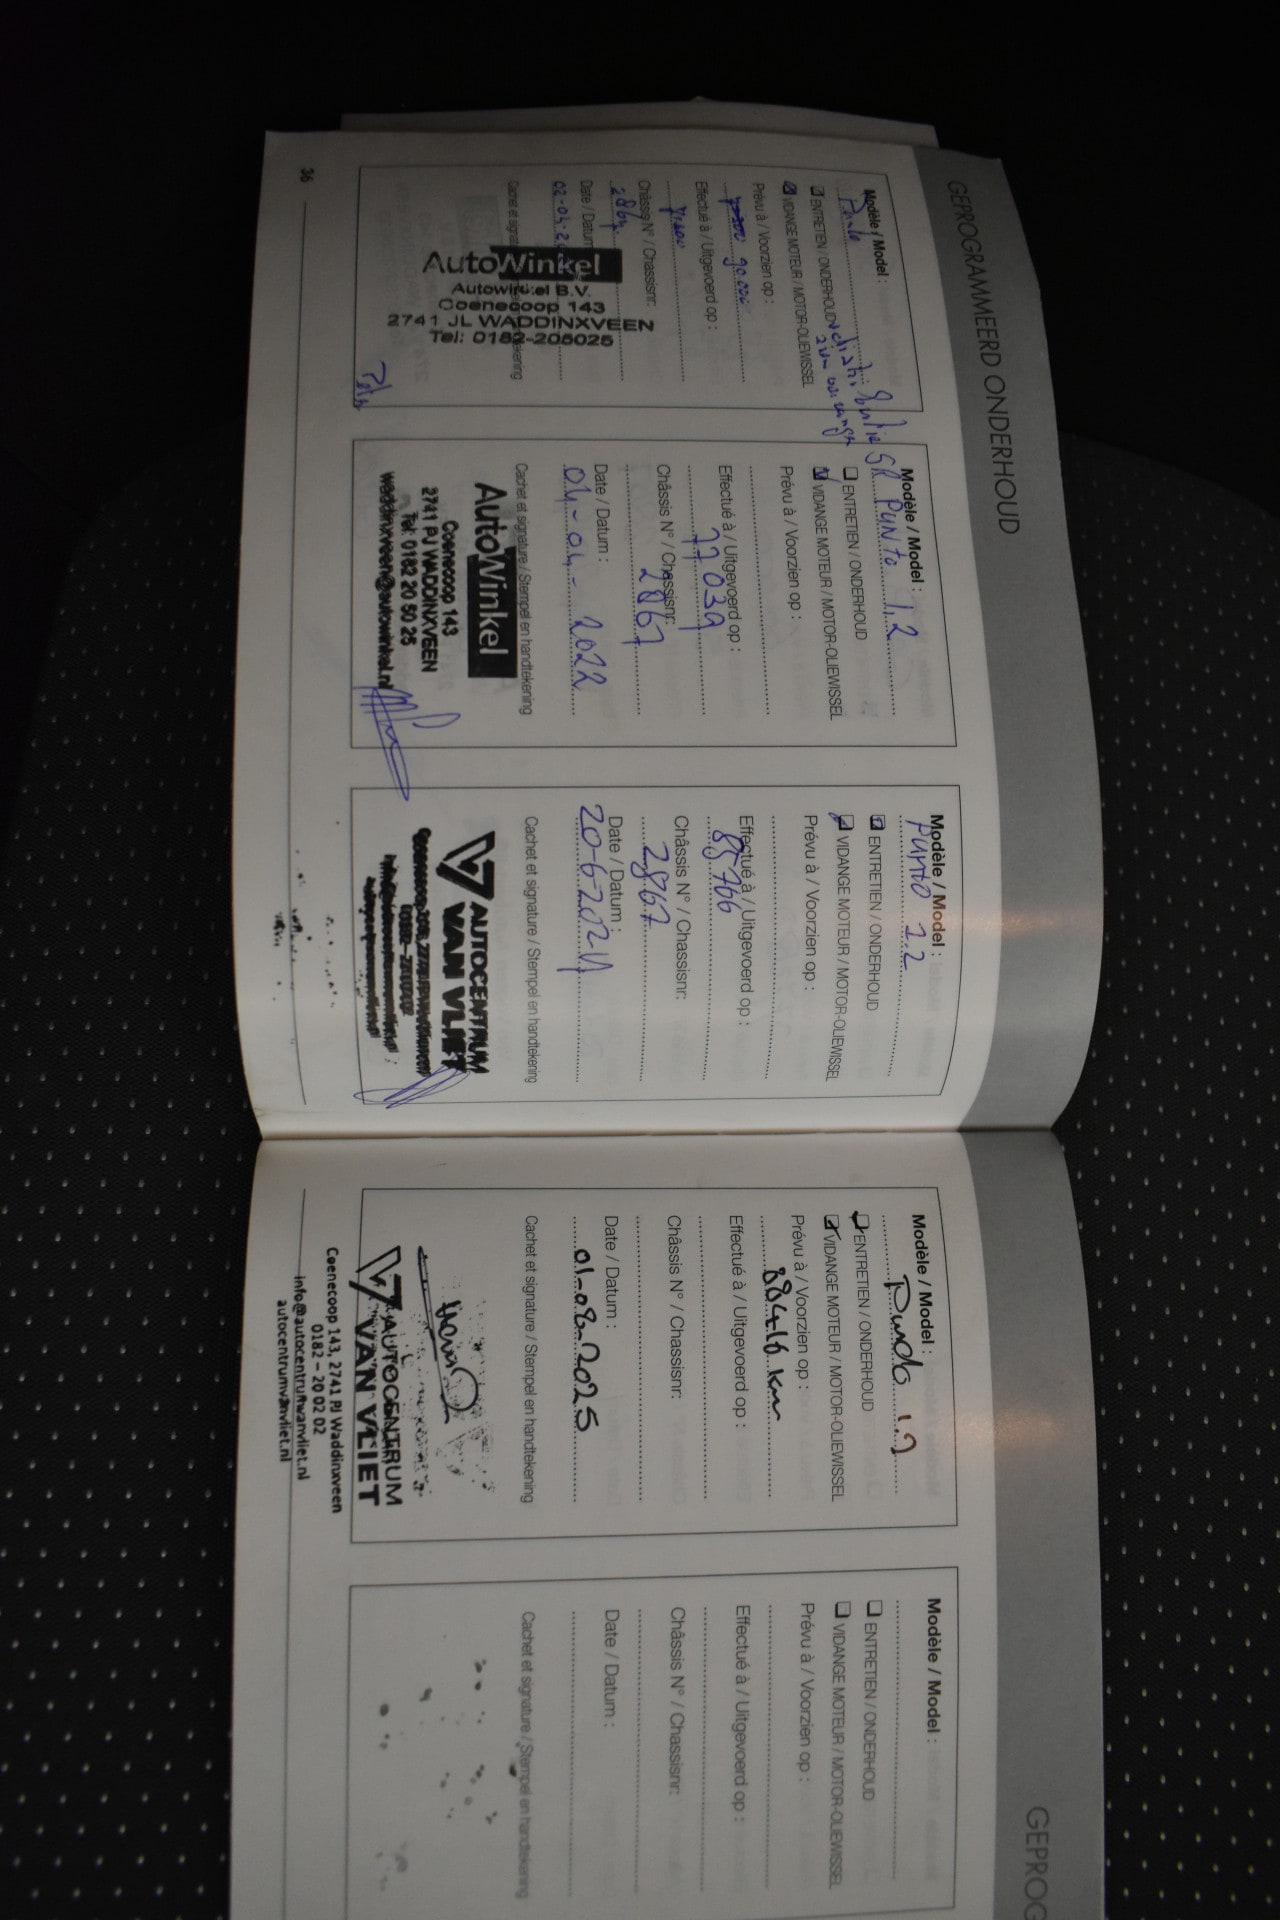 GEPROGRAMMEERD ONDERHOUD
Modèle / Model :
Punto
ENTRETIEN / ONDERHOUD
VIDANGE MOTEUR / MOTOR-OLIEWISSEL
Prévu à / Voorzien op :
90.000
Effectué à / Uitgevoerd op :
Châssis N° / Chassisnr:
2867
Date / Datum
Cachet et signature
AutoWinkel
Autowinkel B.V.
Coenecoop 143
2741 JL WADDINXVEEN
Tel: 0182-205025
Modèle / Model :
Punto 1.2
ENTRETIEN / ONDERHOUD
VIDANGE MOTEUR / MOTOR-OLIEWISSEL
Prévu à / Voorzien op :
Effectué à / Uitgevoerd op :
77039
Châssis N° / Chassisnr:
2867
Date / Datum :
04-04-2022
Cachet et signature / Stempel en handtekening
AutoWinkel
Coenecoop 143
2741 PJ WADDINXVEEN
Tel: 0182 20 50 25
waddinxveen@autowinkel.nl
Modèle / Model :
Punto 1.2
ENTRETIEN / ONDERHOUD
VIDANGE MOTEUR / MOTOR-OLIEWISSEL
Prévu à / Voorzien op :
Effectué à / Uitgevoerd op :
85766
Châssis N° / Chassisnr:
2867
Date / Datum :
20-6-2024
Cachet et signature / Stempel en handtekening
AUTOCENTRUM
VAN VLIET
36
GEPROG
Modèle / Model :
Punto 1.2
ENTRETIEN / ONDERHOUD
VIDANGE MOTEUR / MOTOR-OLIEWISSEL
Prévu à / Voorzien op :
88416 km
Effectué à / Uitgevoerd op :
Châssis N° / Chassisnr:
Date / Datum :
01-08-2025
Cachet et signature / Stempel en handtekening
AUTOCENTRUM
VAN VLIET
Coenecoop 143, 2741 PJ Waddinxveen
0182 – 20 02 02
info@autocentrumvanvliet.nl
autocentrumvanvliet.nl
Modèle / Model :
ENTRETIEN / ONDERHOUD
VIDANGE MOTEUR / MOTOR-OLIEWISSEL
Prévu à / Voorzien op :
Effectué à / Uitgevoerd op :
Châssis N° / Chassisnr:
Date / Datum :
Cachet et signature / Stempel en handtekening